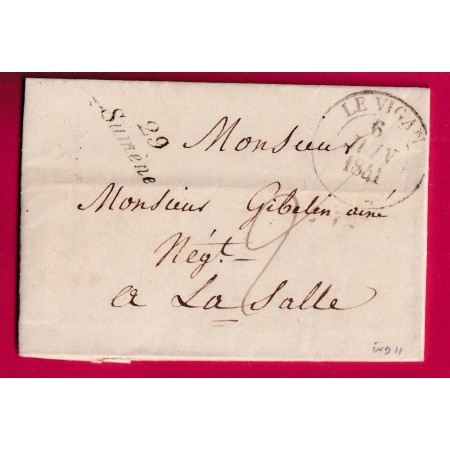 29
Sumène
LE VIGAN
6
1841
Monsieur
Monsieur Gibelin ainé
Négt.
a La Salle
IND 11